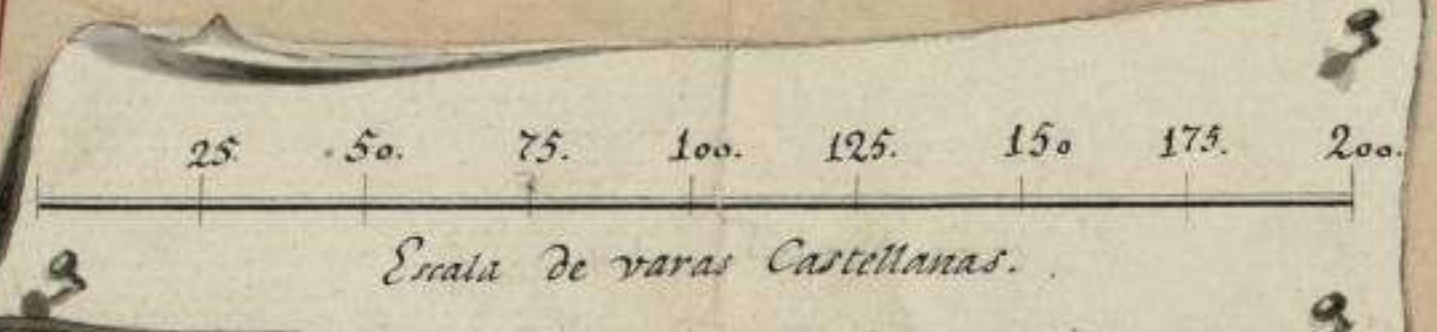 25. 50. 75. 100. 125. 150 175. 200.
Escala de varas Castellanas.